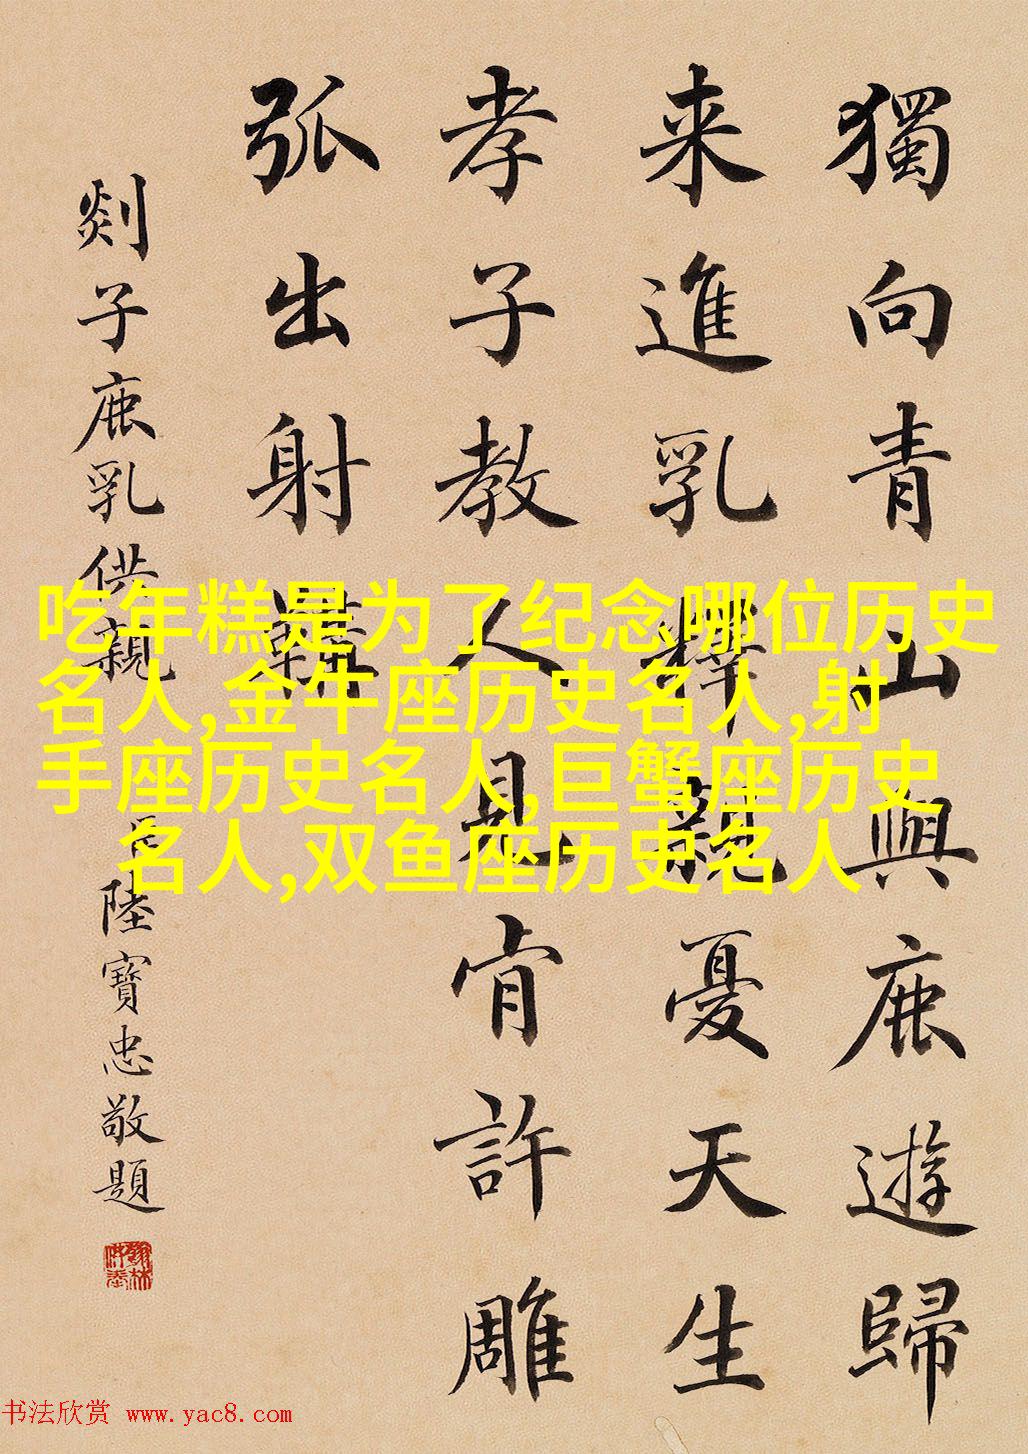 獨向青山與鹿遊歸
来進乳擇親憂天生
孝子教人見肯許雕
弧出射韝
剡子鹿乳供親
臣陸寶忠敬題
吃年糕是为了纪念哪位历史
名人,金牛座历史名人,射
手座历史名人,巨蟹座历史
名人,双鱼座历史名人
书法欣赏 www.yac8.com